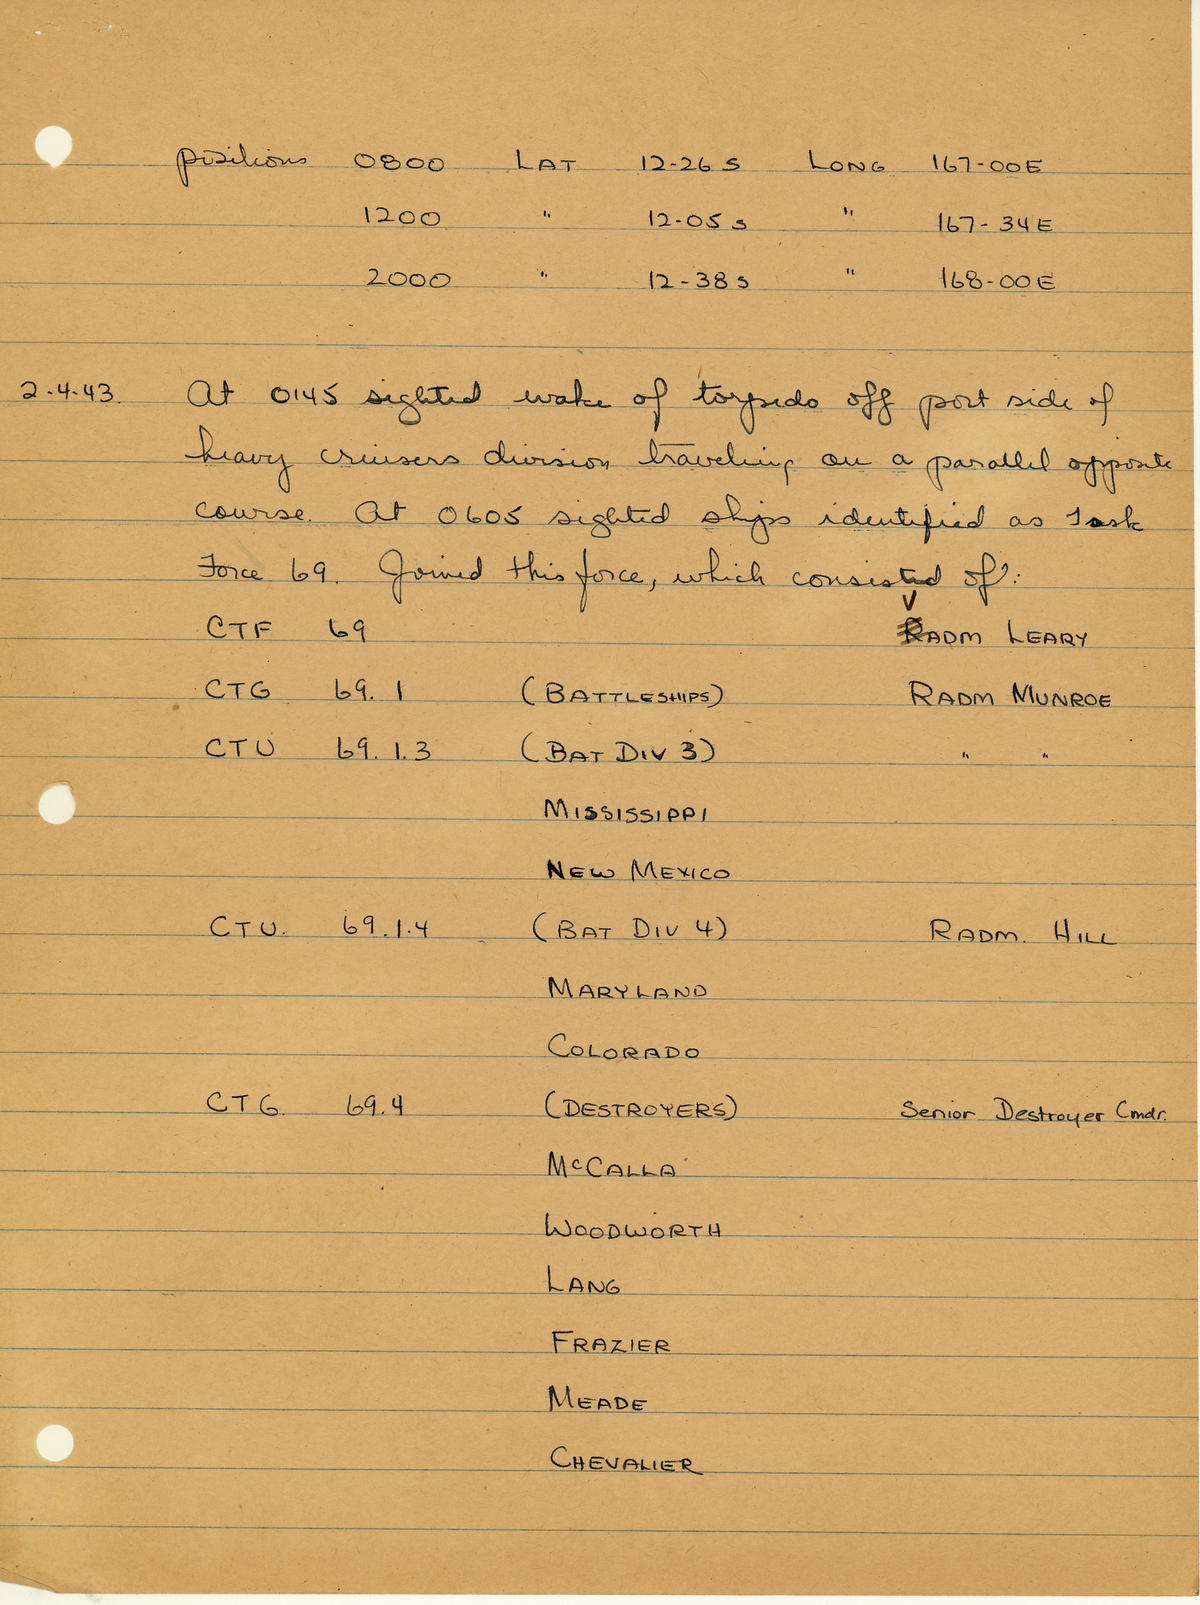 positions 0800 LAT 12-26 S LONG 167-00E
1200 " 12-05 S " 167-34E
2000 " 12-38 S " 168-00E
2-4-43. At 0145 sighted wake of torpedo off port side of
heavy cruisers division traveling on a parallel opposite
course. At 0605 sighted ships identified as Task
Force 69. Joined this force, which consisted of:
CTF 69 VADM LEARY
CTG 69.1 (BATTLESHIPS) RADM MUNROE
CTU 69.1.3 (BAT DIV 3) " "
MISSISSIPPI
NEW MEXICO
CTU. 69.1.4 (BAT DIV 4) RADM. HILL
MARYLAND
COLORADO
CTG. 69.4 (DESTROYERS) Senior Destroyer Cmdr.
McCALLA
WOODWORTH
LANG
FRAZIER
MEADE
CHEVALIER